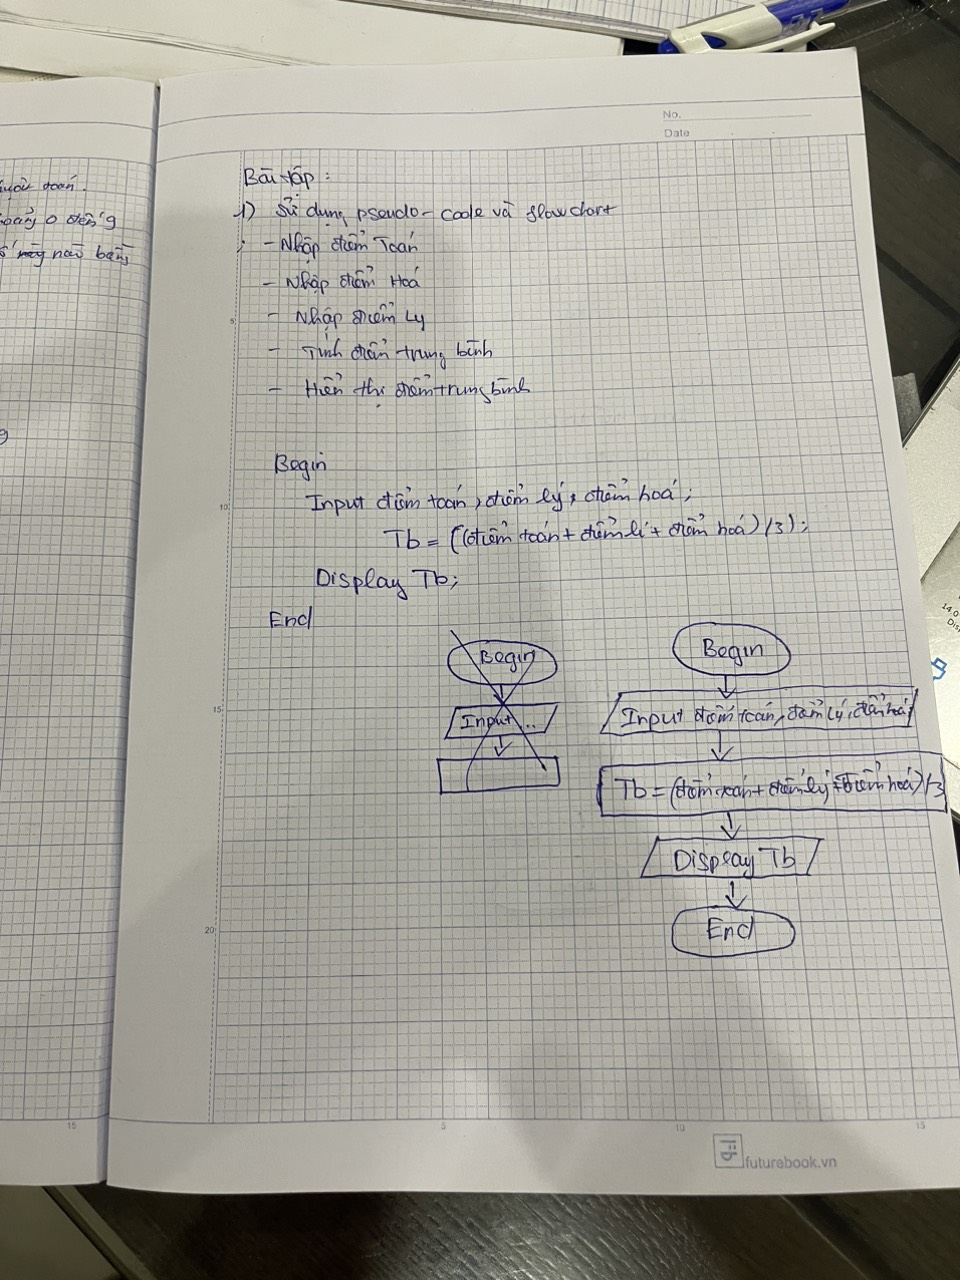 No.
Date
toán.
0 đến 9
nào bằng
Bài tập :
1) Sử dụng pseudo-code và flowchart
- Nhập điểm Toán
- Nhập điểm Hoá
- Nhập điểm Lý
- Tính điểm trung bình
- Hiển thị điểm trung bình
Begin
Input điểm toán, điểm lý, điểm hoá;
Tb = ((điểm toán + điểm lí + điểm hoá) /3);
Display Tb;
End
Begin
Input ...
Begin
Input điểm toán, điểm lý, điểm hoá
Tb = (điểm toán + điểm lý + điểm hoá) /3
Display Tb
End
5
10
15
20
15
5
10
15
futurebook.vn
14.0